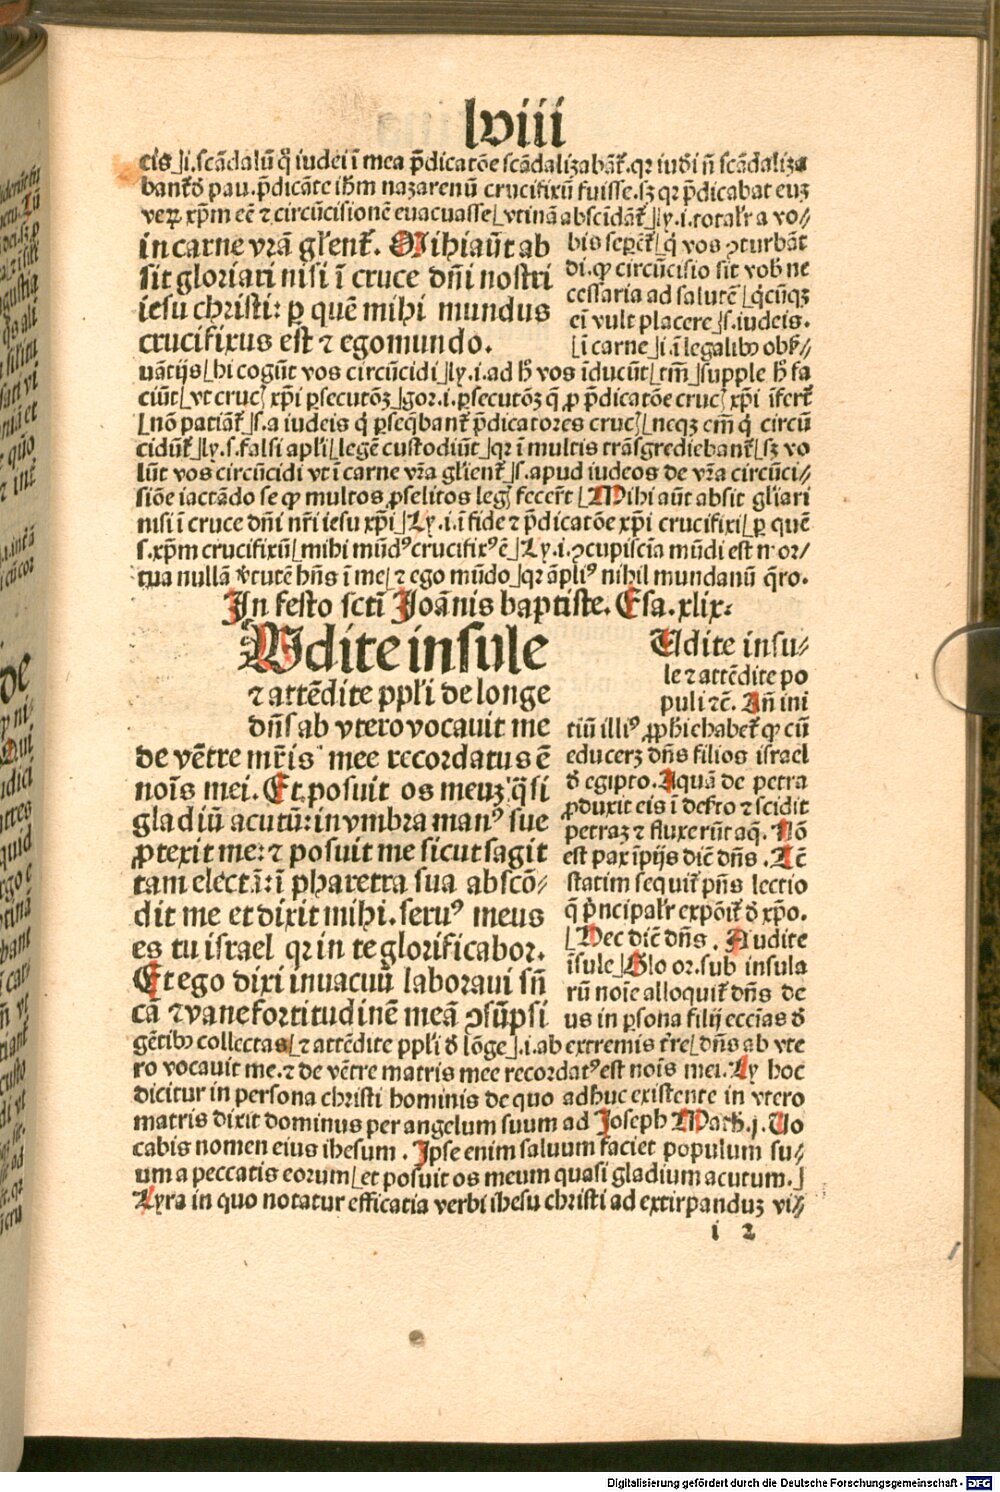 lviii
cis ⌋i.scādalū q̄ iudei ī mea p̄dicatōe scādalizabāt̄.qr iudi n̄ scādaliza
bant̄ ꝺ pau.p̄dicāte ihm nazarenū crucifixū fuisse.sꝫ qr p̄dicabat euꝫ
verꝝ xp̄m eē ⁊ circūcisionē euacuasse⌊vtinā abscidāt̄⌋ly.i.totalr̄ a vo⸗
in carne vr̄a gl'ent̄. Mihi aūt ab
sit gloriari nisi ī cruce dn̄i nostri
iesu christi: ꝑ quē mihi mundus
crucifixus est ⁊ ego mundo.
bis seꝑēt̄⌊q̄ vos ↄturbāt
di.ꝙ circūcisio sit vob ne
cessaria ad salutē⌊q̄cūqꝫ
ei vult placere⌋s.iudeis.
⌊ī carne⌋i.ī legalibꝰ obẜ⸗
uātijs⌊hi cogūt vos circūcidi⌋ly.i.ad h̄ vos īducūt⌊tm̄⌋supple h̄ fa
ciūt⌊vt crucꝭ xp̄i ꝑsecutōꝫ⌋gor.i.ꝑsecutōꝫ q̄ ꝓ p̄dicatōe crucꝭ xp̄i īfert̄
⌊nō patiāt̄⌋s.a iudeis q̄ ꝑseq̄bant̄ p̄dicatores crucꝭ⌊neqꝫ em̄ q̄ circū
cidūt̄⌋ly.s.falsi apl'i⌊legē custodiūt⌋qr ī multis trāsgrediebant̄⌊sꝫ vo
lūt vos circūcidi vt ī carne vr̄a gl'ient̄⌋s.apud iudeos de vr̄a circūci⸗
siōe iactādo se ꝙ multos ꝓselitos legꝭ fecer̄t⌊Mihi aūt absit gl'iari
nisi ī cruce dn̄i nr̄i iesu xp̄i⌋Ly.i.ī fide ⁊ p̄dicatōe xp̄i crucifixi⌊ꝑ quē
s.xp̄m crucifixū⌊mihi mūdꝰ crucifixꝰ ē⌋Ly.i.ↄcupiscīa mūdi est mor⸗
tua nullā v̄tutē hn̄s ī me⌊⁊ ego mūdo⌋qr āpliꝰ nihil mundanū q̄ro.
In festo scti Joānis baptiste. Esa.xlix.
Udite insule
⁊ attēdite ppl'i de longe
dn̄s ab vtero vocauit me
de vētre mr̄is mee recordatus ē
nois mei. Et posuit os meuꝫ q̄si
gladiū acutū: in vmbra manꝰ sue
ꝓtexit me: ⁊ posuit me sicut sagit
tam electā: ī pharetra sua abscō⸗
dit me et dixit mihi. seruꝰ meus
es tu israel qr in te glorificabor.
Et ego dixi in uacuū laboraui sn̄
cā ⁊ vane fortitudinē meā ↄsūpsi
Udite insu⸗
le ⁊ attēdite po
puli ⁊c̄. Jn̄ ini
tiū illiꝰ ꝓphie habet̄ ꝙ cū
educerꝫ dn̄s filios israel
ꝺ egipto. Aquā de petra
ꝓduxit eis ī defto ⁊ scidit
petraꝫ ⁊ fluxerūt aq̄. Nō
est pax īpijs dic̄ dn̄s. Et ē
statim sequit̄ pn̄s lectio
q̄ p̄ncipalr̄ expōit̄ ꝺ xp̄o.
⌊Hec dic̄ dn̄s. Audite
īsule⌋Glo or. sub insula
rū noīe alloquit̄ dn̄s de
us in ꝑsona filij ecc̄ias ꝺ
gētibꝰ collectas⌊⁊ attēdite ppl'i ꝺ lōge⌋.i.ab extremis tr̄e⌊dn̄s ab vte
ro vocauit me.⁊ de vētre matris mee recordatꝰ est nois mei. Ly hoc
dicitur in persona christi hominis de quo adhuc existente in vtero
matris dixit dominus per angelum suum ad Joseph Math.j. Uo
cabis nomen eius ihesum. Jpse enim saluum faciet populum su⸗
um a peccatis eorum⌊et posuit os meum quasi gladium acutum.⌋
Lyra in quo notatur efficatia verbi ihesu christi ad extirpanduꝫ vi⸗
i 2
Digitalisierung gefördert durch die Deutsche Forschungsgemeinschaft - DFG